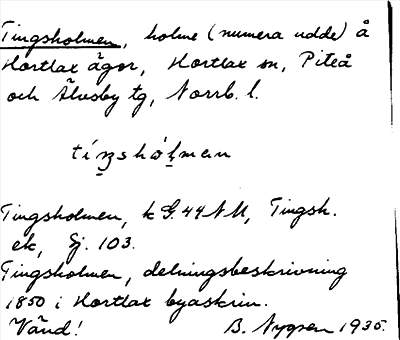 Tingsholmen, holme (numera udde) å
Hortlax ägor, Hortlax sn, Piteå
och Älvsby tg, Norrb. l.
tíŋshòlman
Tingsholmen, k G. 44 N M, Tingsh.
ek, Ej. 103.
Tingsholmen, delningsbeskrivning
1850 i Hortlax byaskrin.
Vänd! B. Nygren 1935.